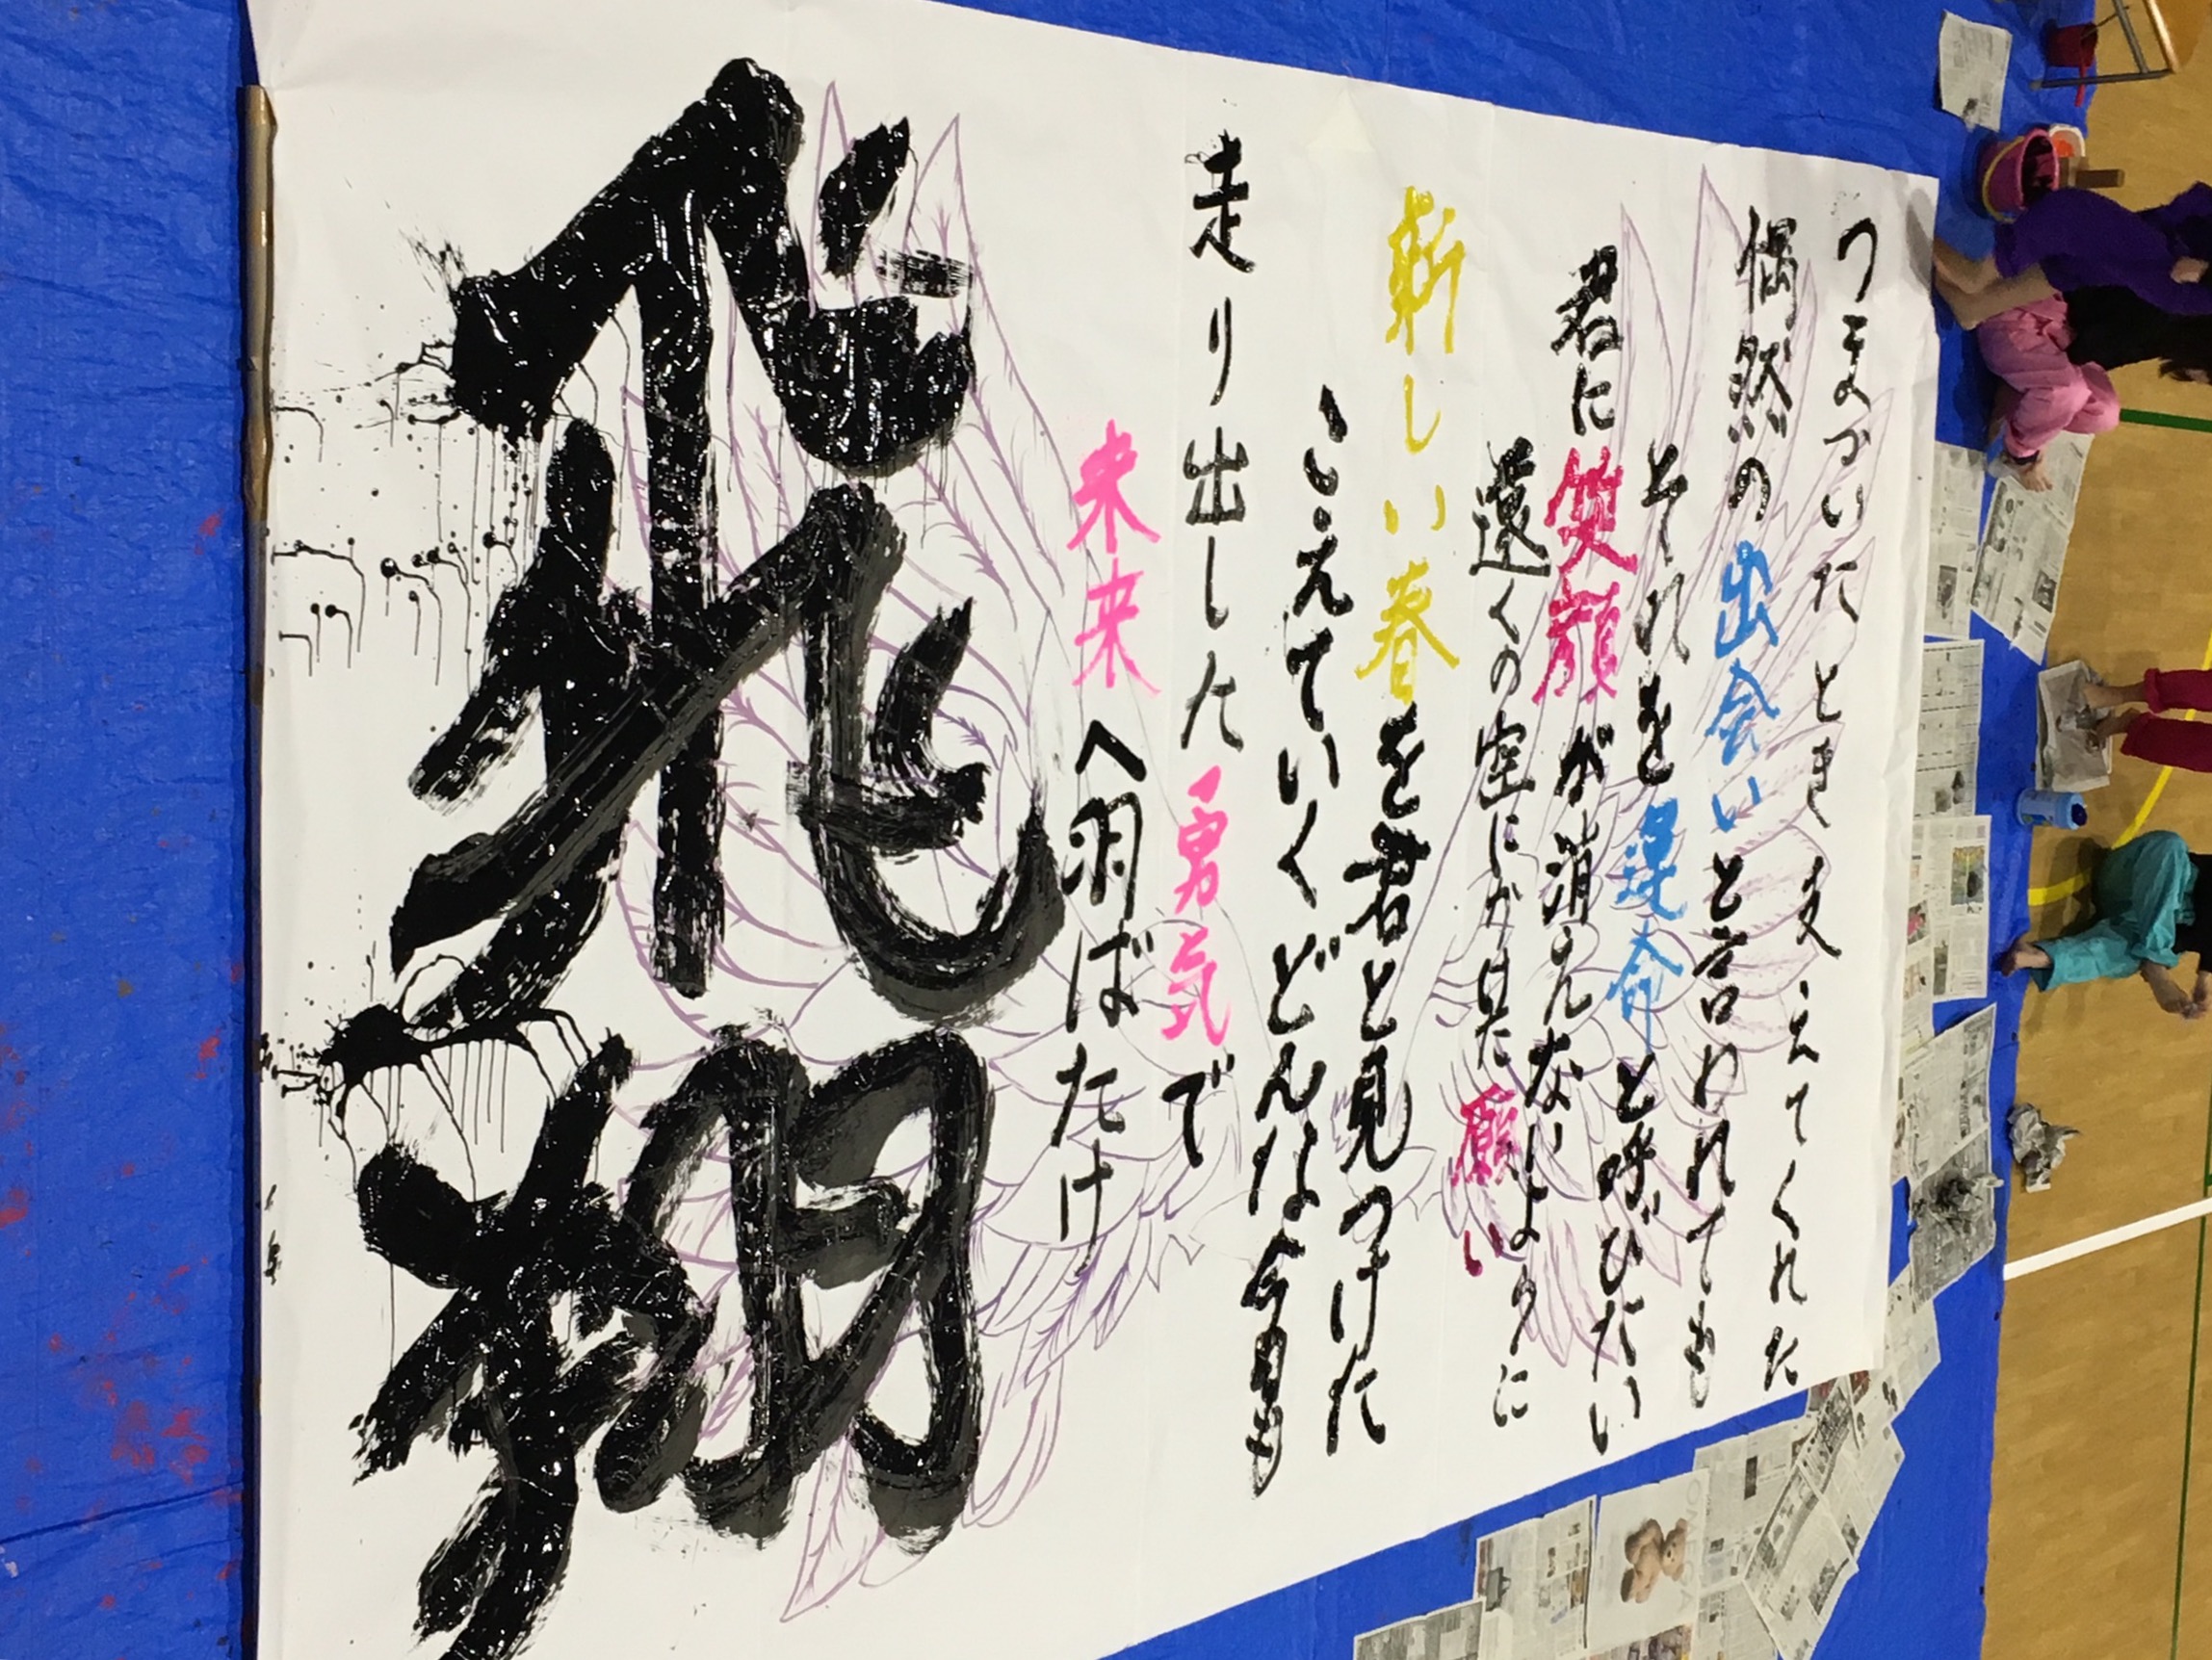 つまづいたとき支えてくれた
偶然の出会いと言われても
それを運命と呼びたい
君に笑顔が消えないように
遠くの空にが見た願い
新しい春を君と見つけた
こえていくどんな今日も
走り出した勇気で
未来へ羽ばたけ
飛翔